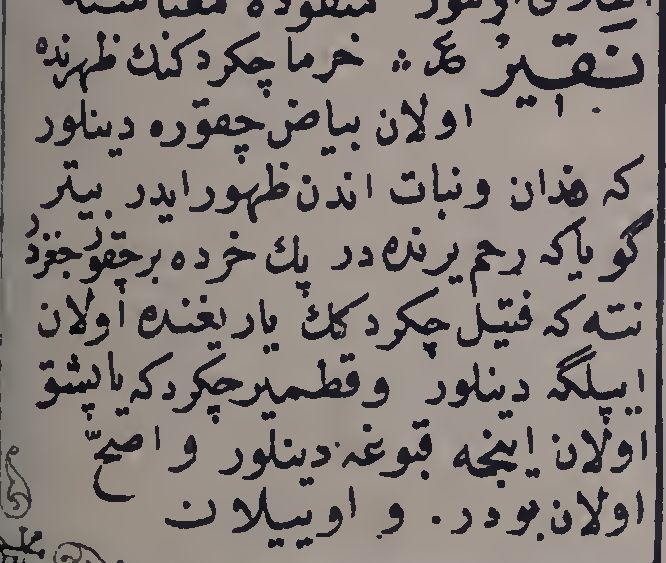 اولنور منقوده معناسنه
نقير ع ⁘ خرما چكردكنك ظهرنده
اولان بياض چقوره دينلور
كه فدان و نبات اندن ظهور ايدر بيتر
كويا كه رحم يرنده در پك خرده بر چقورجغزدر
نته كه فتيل چكردكك ياريغنده اولان
ايپلكه دينلور و قطمير چكردكه ياپشق
اولان اينجه قبوغه دينلور و اصح
اولان بودر. و اوييلان